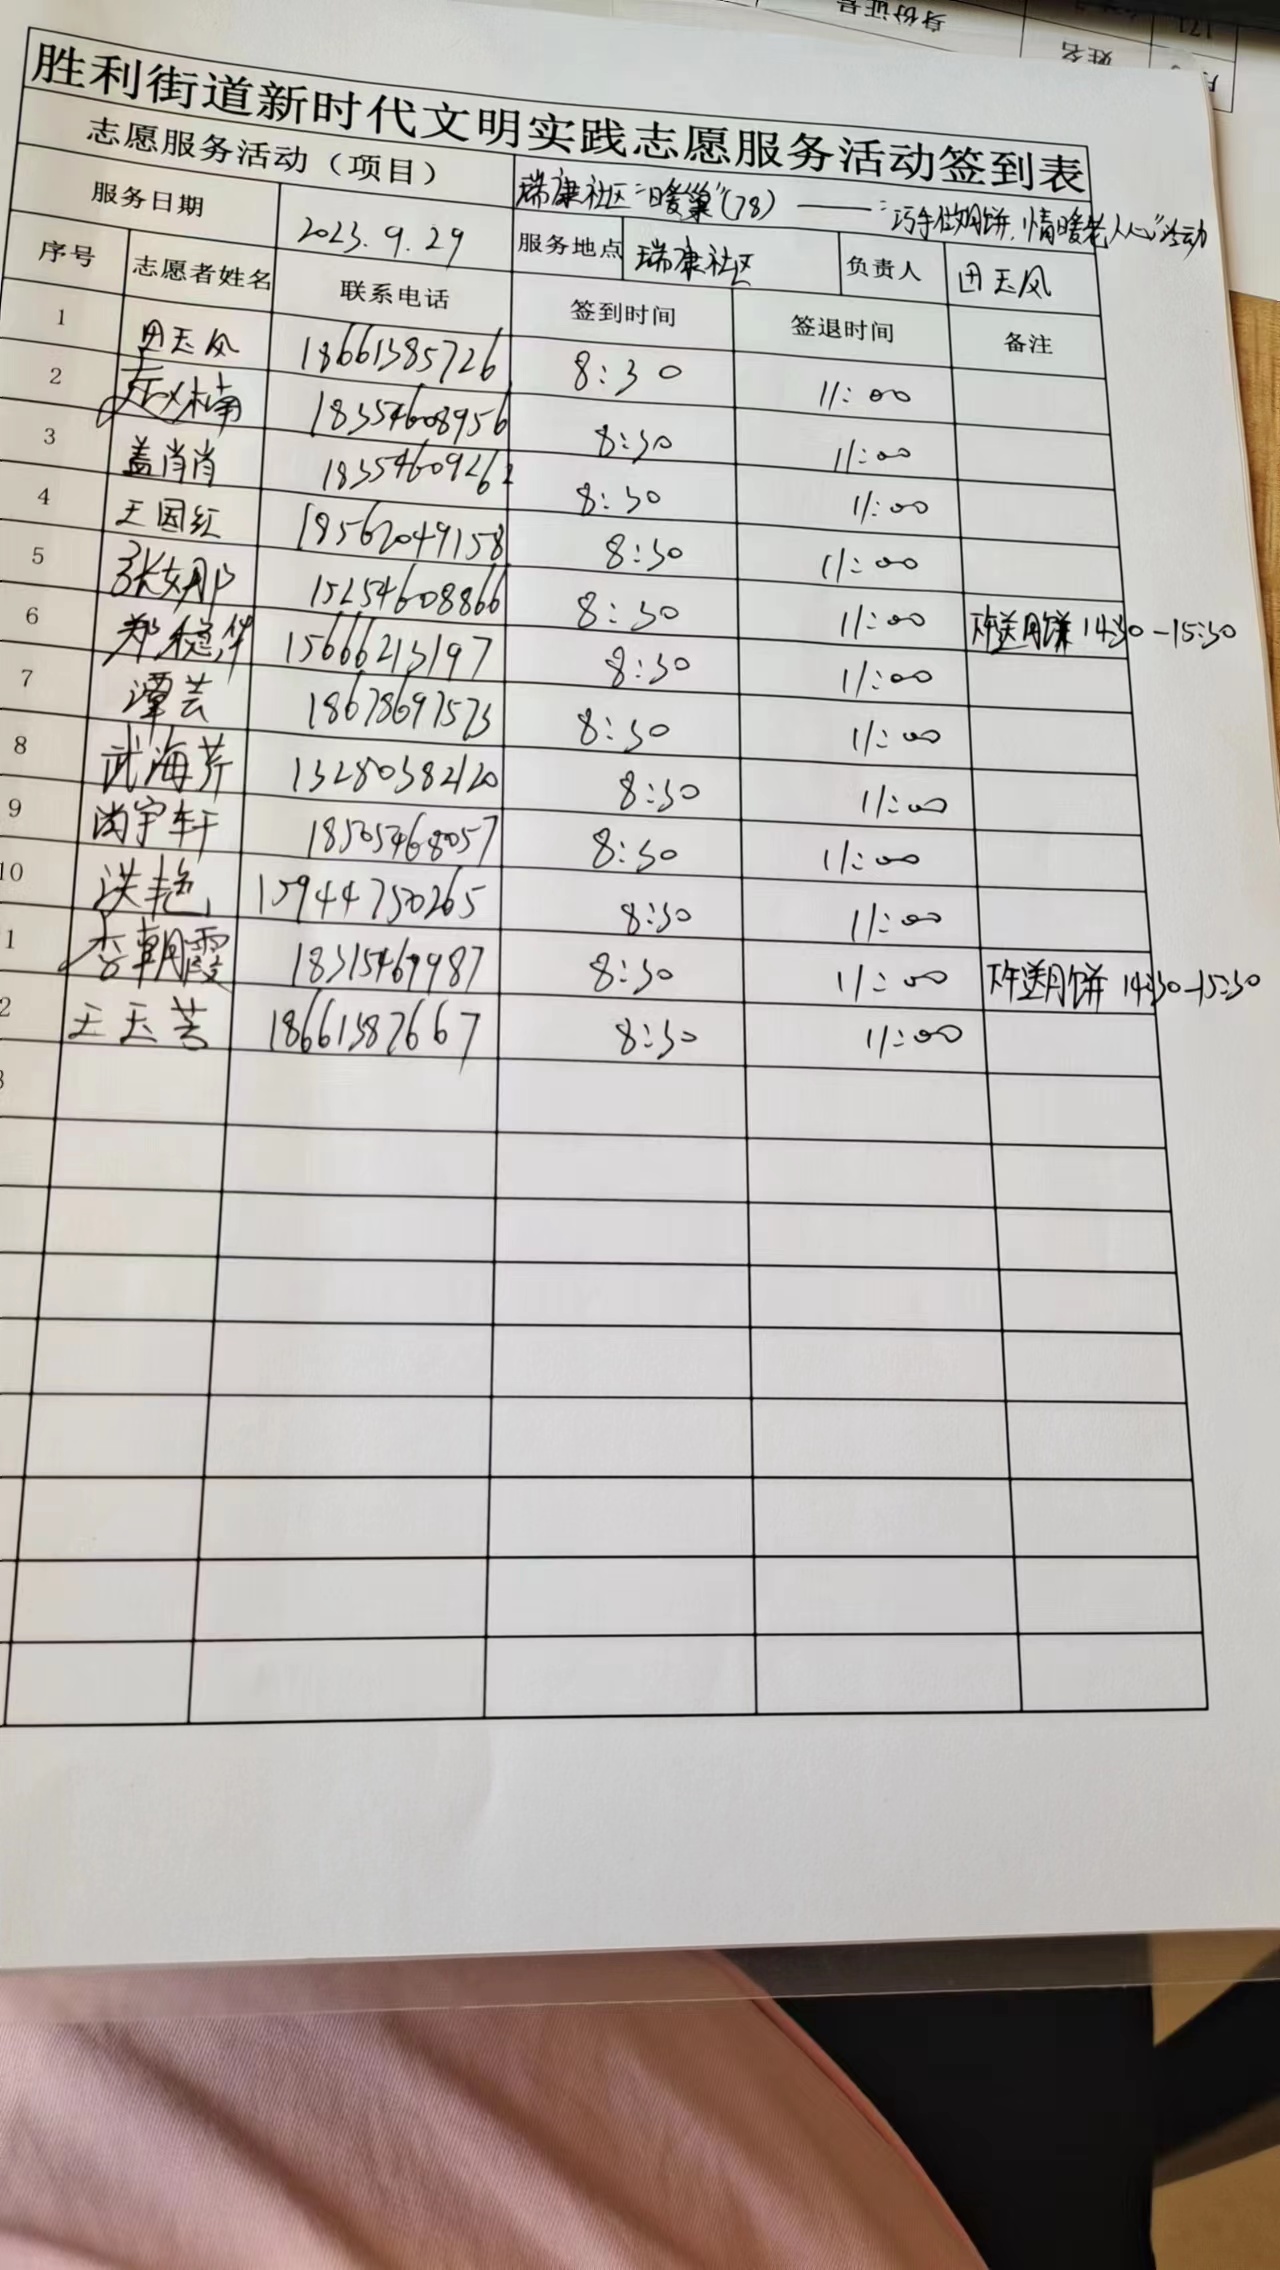 身份证号
姓名
171
胜利街道新时代文明实践志愿服务活动签到表
志愿服务活动（项目） 瑞康社区"暖巢"(78)——"巧手做月饼,情暖老人心"活动
服务日期 2023.9.29 服务地点 瑞康社区 负责人 田玉凤
序号 志愿者姓名 联系电话 签到时间 签退时间 备注
1 田玉凤 18661385726 8:30 11:00
2 赵楠 18354608956 8:30 11:00
3 盖肖肖 18354609262 8:30 11:00
4 王国红 18562049158 8:30 11:00
5 张娜 15254608866 8:30 11:00 下午送月饼 14:30-15:30
6 郑穗华 15666213197 8:30 11:00
7 谭芸 18678697573 8:30 11:00
8 武海芹 13280382120 8:30 11:00
9 尚宇轩 18505468057 8:30 11:00
10 洪艳 15944750265 8:30 11:00
1 李朝霞 18315469987 8:30 11:00 下午送月饼 14:30-15:30
2 王玉芳 18661387667 8:30 11:00
3